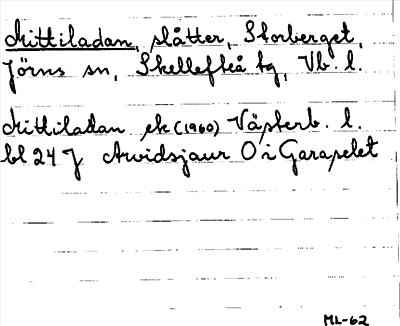 Mittiladan, slåtter, Storberget,
Jörns sn, Skellefteå tg, Vb. l.
Mittiladan ek (1960) Västerb. l.
bl 24 J Arvidsjaur O i Garaselet
ML-62